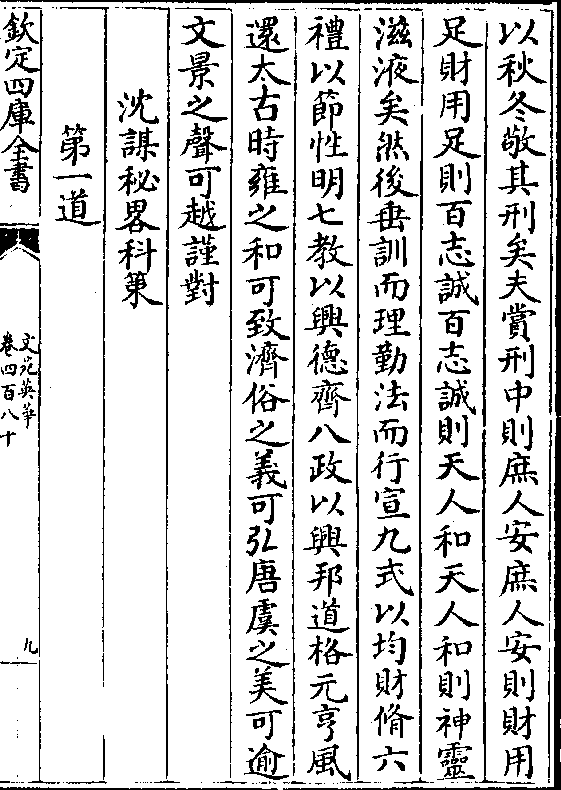 以秋冬敬其刑矣夫賞刑中則庶人安庶人安則財用
足財用足則百志誠百志誠則天人和天人和則神靈
滋液矣然後垂訓而理勤法而行宣九式以均財脩六
禮以節性明七教以興德齊八政以興邦道格元亨風
還太古時雍之和可致濟俗之義可弘唐虞之美可逾
文景之聲可越謹對
沈謀秘畧科策
第一道
欽定四庫全書
文苑英華
卷四百八十
九